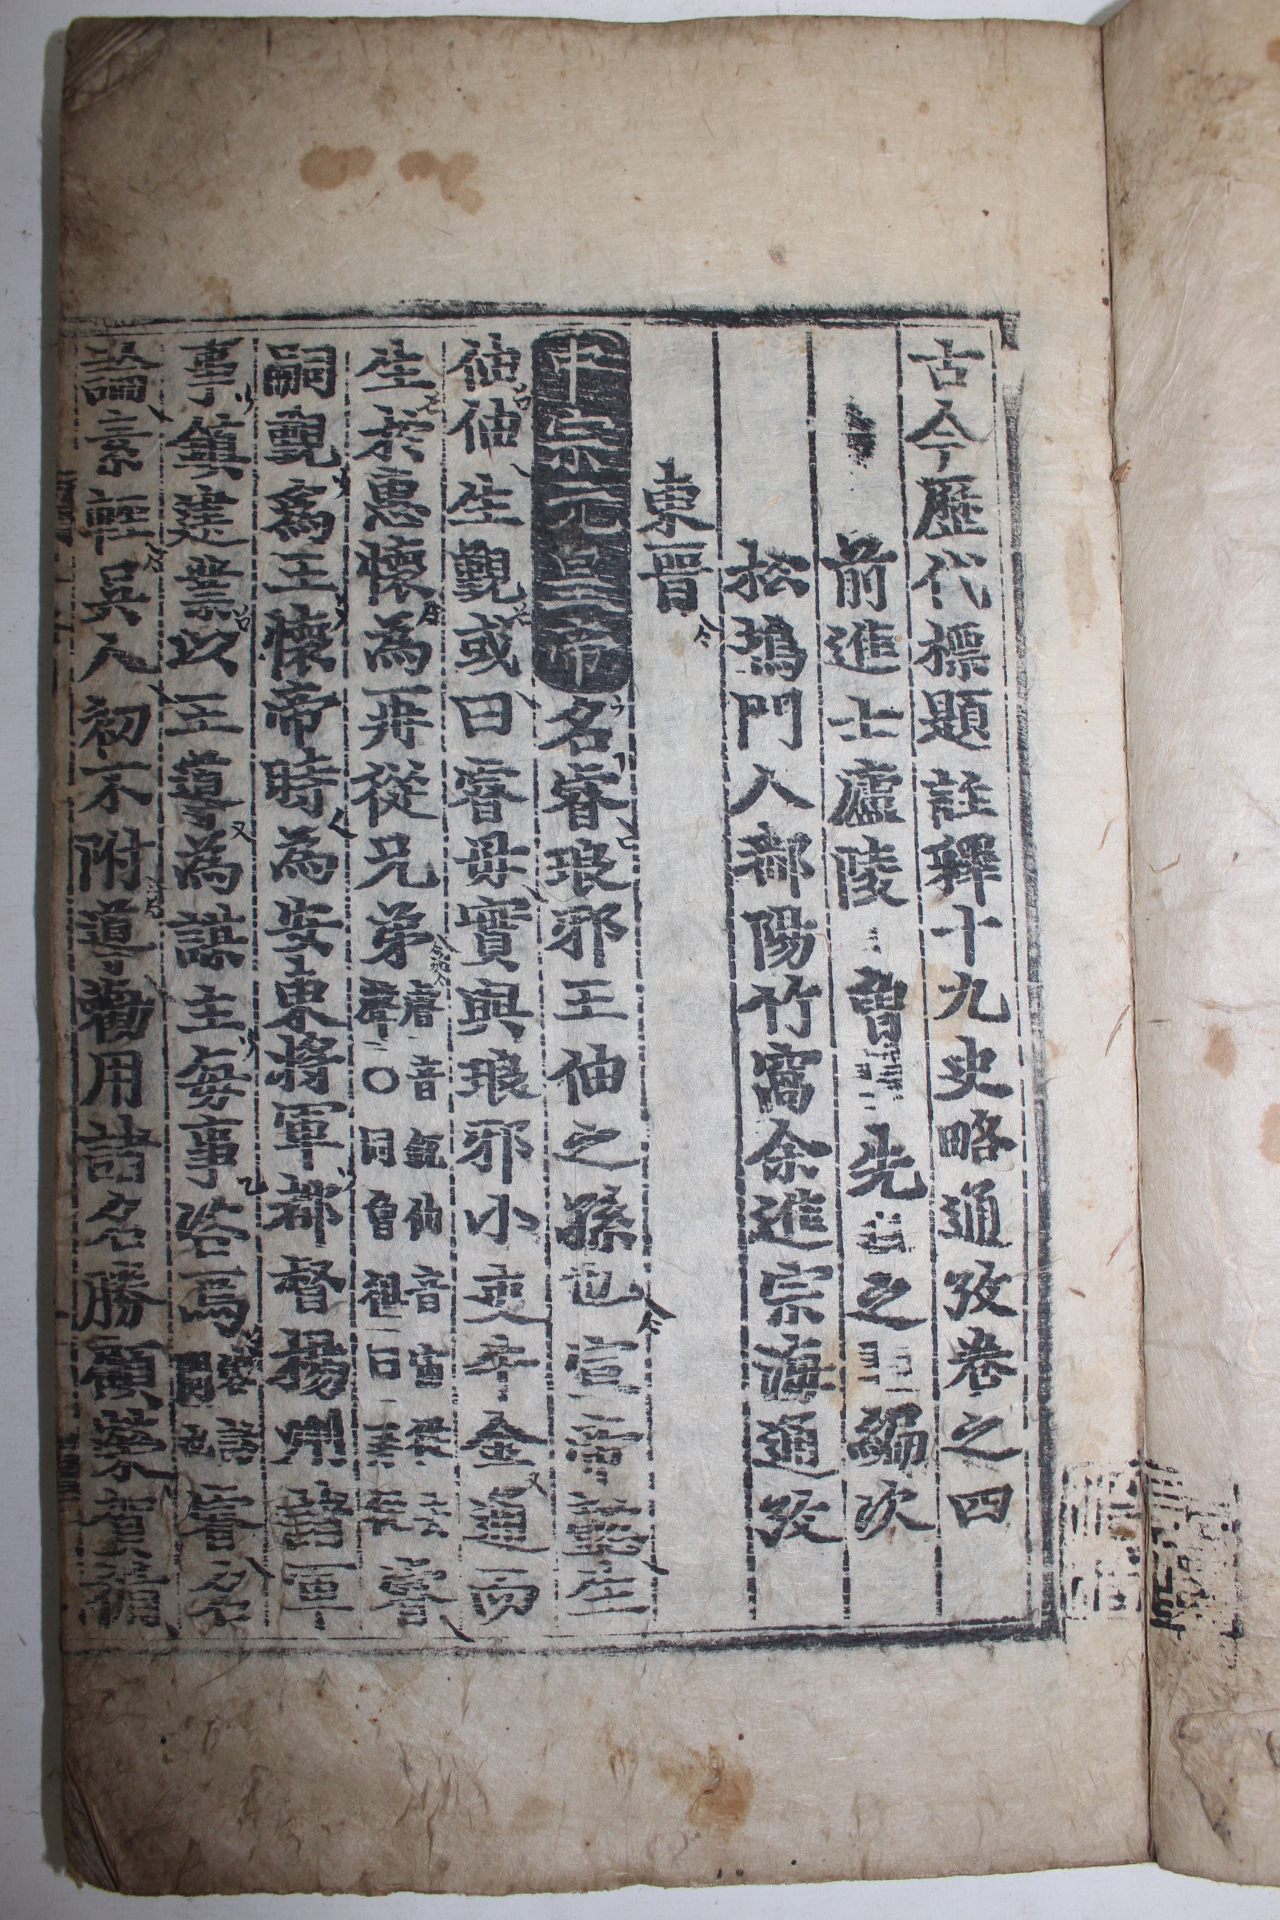 古今歷代標題註釋十九史略通攷卷之四
前進士廬陵曾先之編次
松塢門人鄱陽竹窩余進宗海通攷
東晉
中宗元皇帝名睿琅邪王伷之孫也宣帝懿生
伷伷生覲或曰睿毋實與琅邪小吏牛金通而
生於惠懷為再從兄弟
睿音
音
伷音宙
從去聲
○同曾祖曰再
嗣覲爲王懷帝時為安東將軍都督揚州諸軍
事鎮建業以王導為謀主每事咨焉
睿名
論素輕吳人初不附導勸用諸名勝顧榮賀循